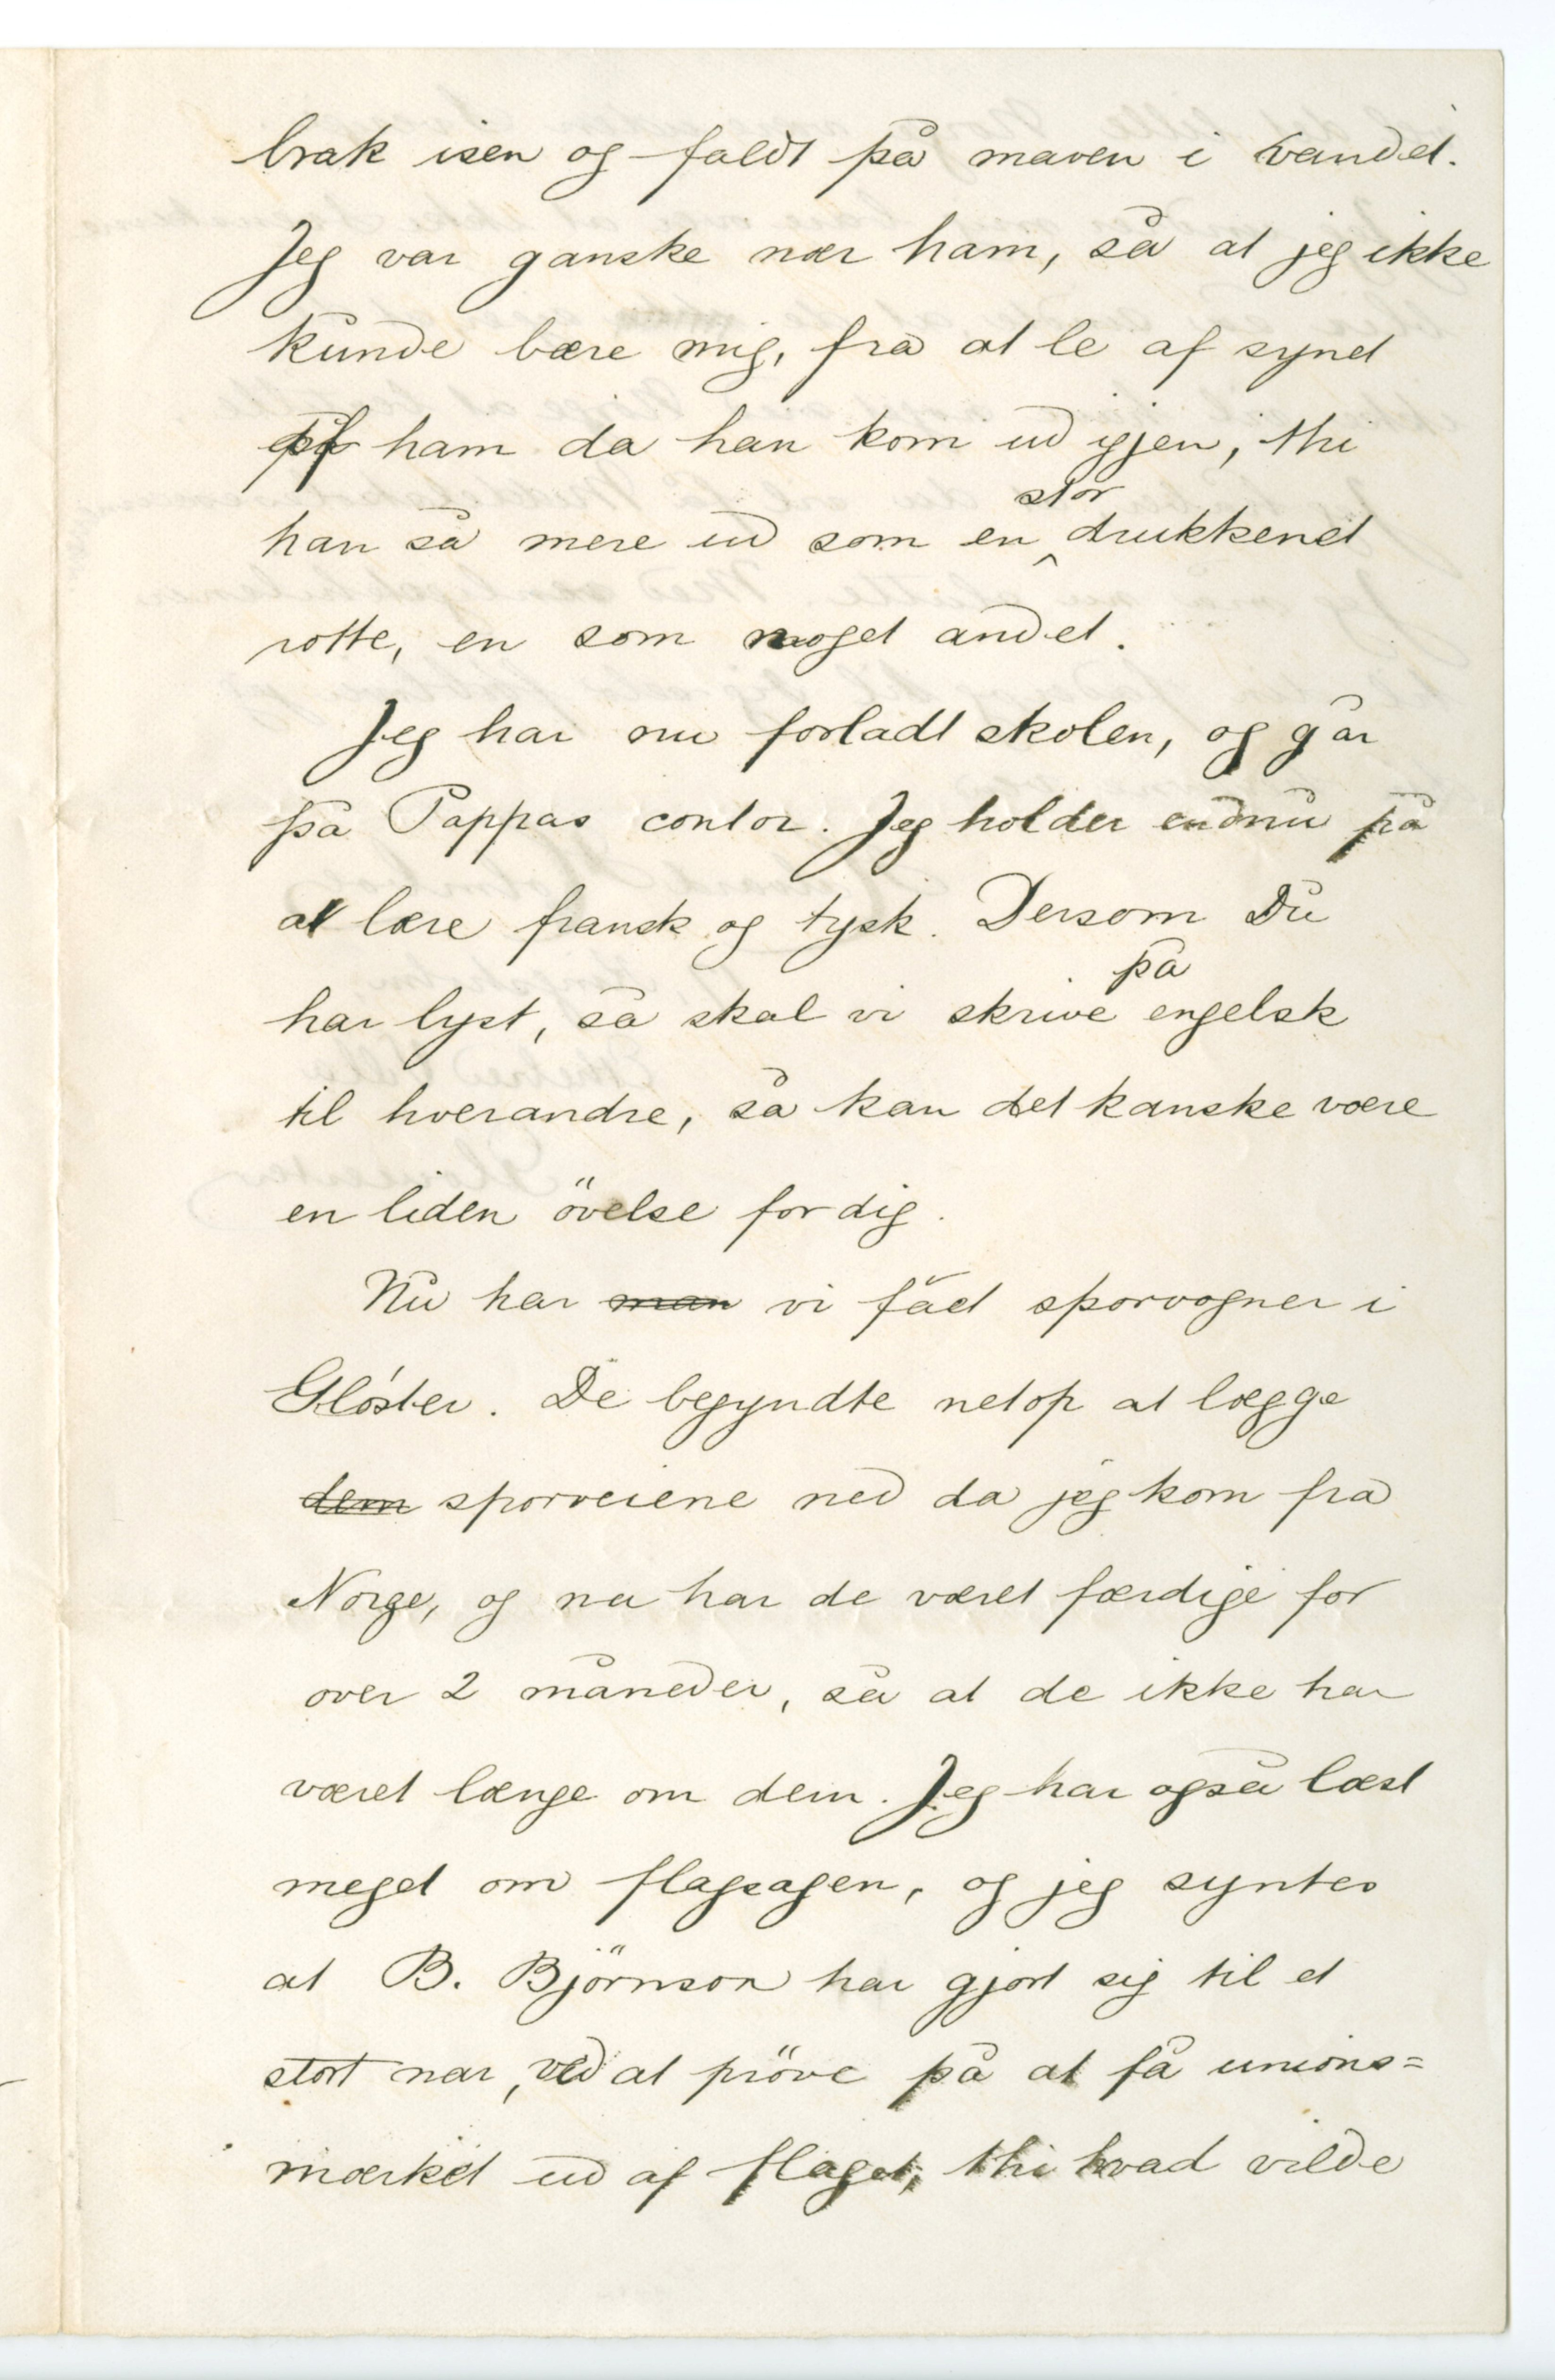 brak isen og faldt på maven i vandet.
Jeg var ganske nær ham, så at jeg ikke
kunde bære mig, fra at le af synet
af ham da han kom ud igjen, thi
han så mere ud som en stor drukkenet
rotte, en som noget andet.
Jeg har nu forladt skolen, og går
på Pappas contor. Jeg holder endnu på
at lære fransk og tysk. Dersom Du
har lyst, så skal vi skrive på engelsk
til hverandre, så kan det kanske være
en liden övelse for dig.
Nu har man vi fåt sporvogner i
Glóster. De begyndte netop at lægge
dem sporveiene ned da jeg kom fra
Norge, og nu har de været færdige for
over 2 måneder, så at de ikke har
været længe om dem. Jeg har også læst
meget om flagsagen, og jeg syntes
at B. Björnson har gjort sig til et
stort nar, ved at pröve på at få unions=
mærket ud af flaget, thi hvad vilde